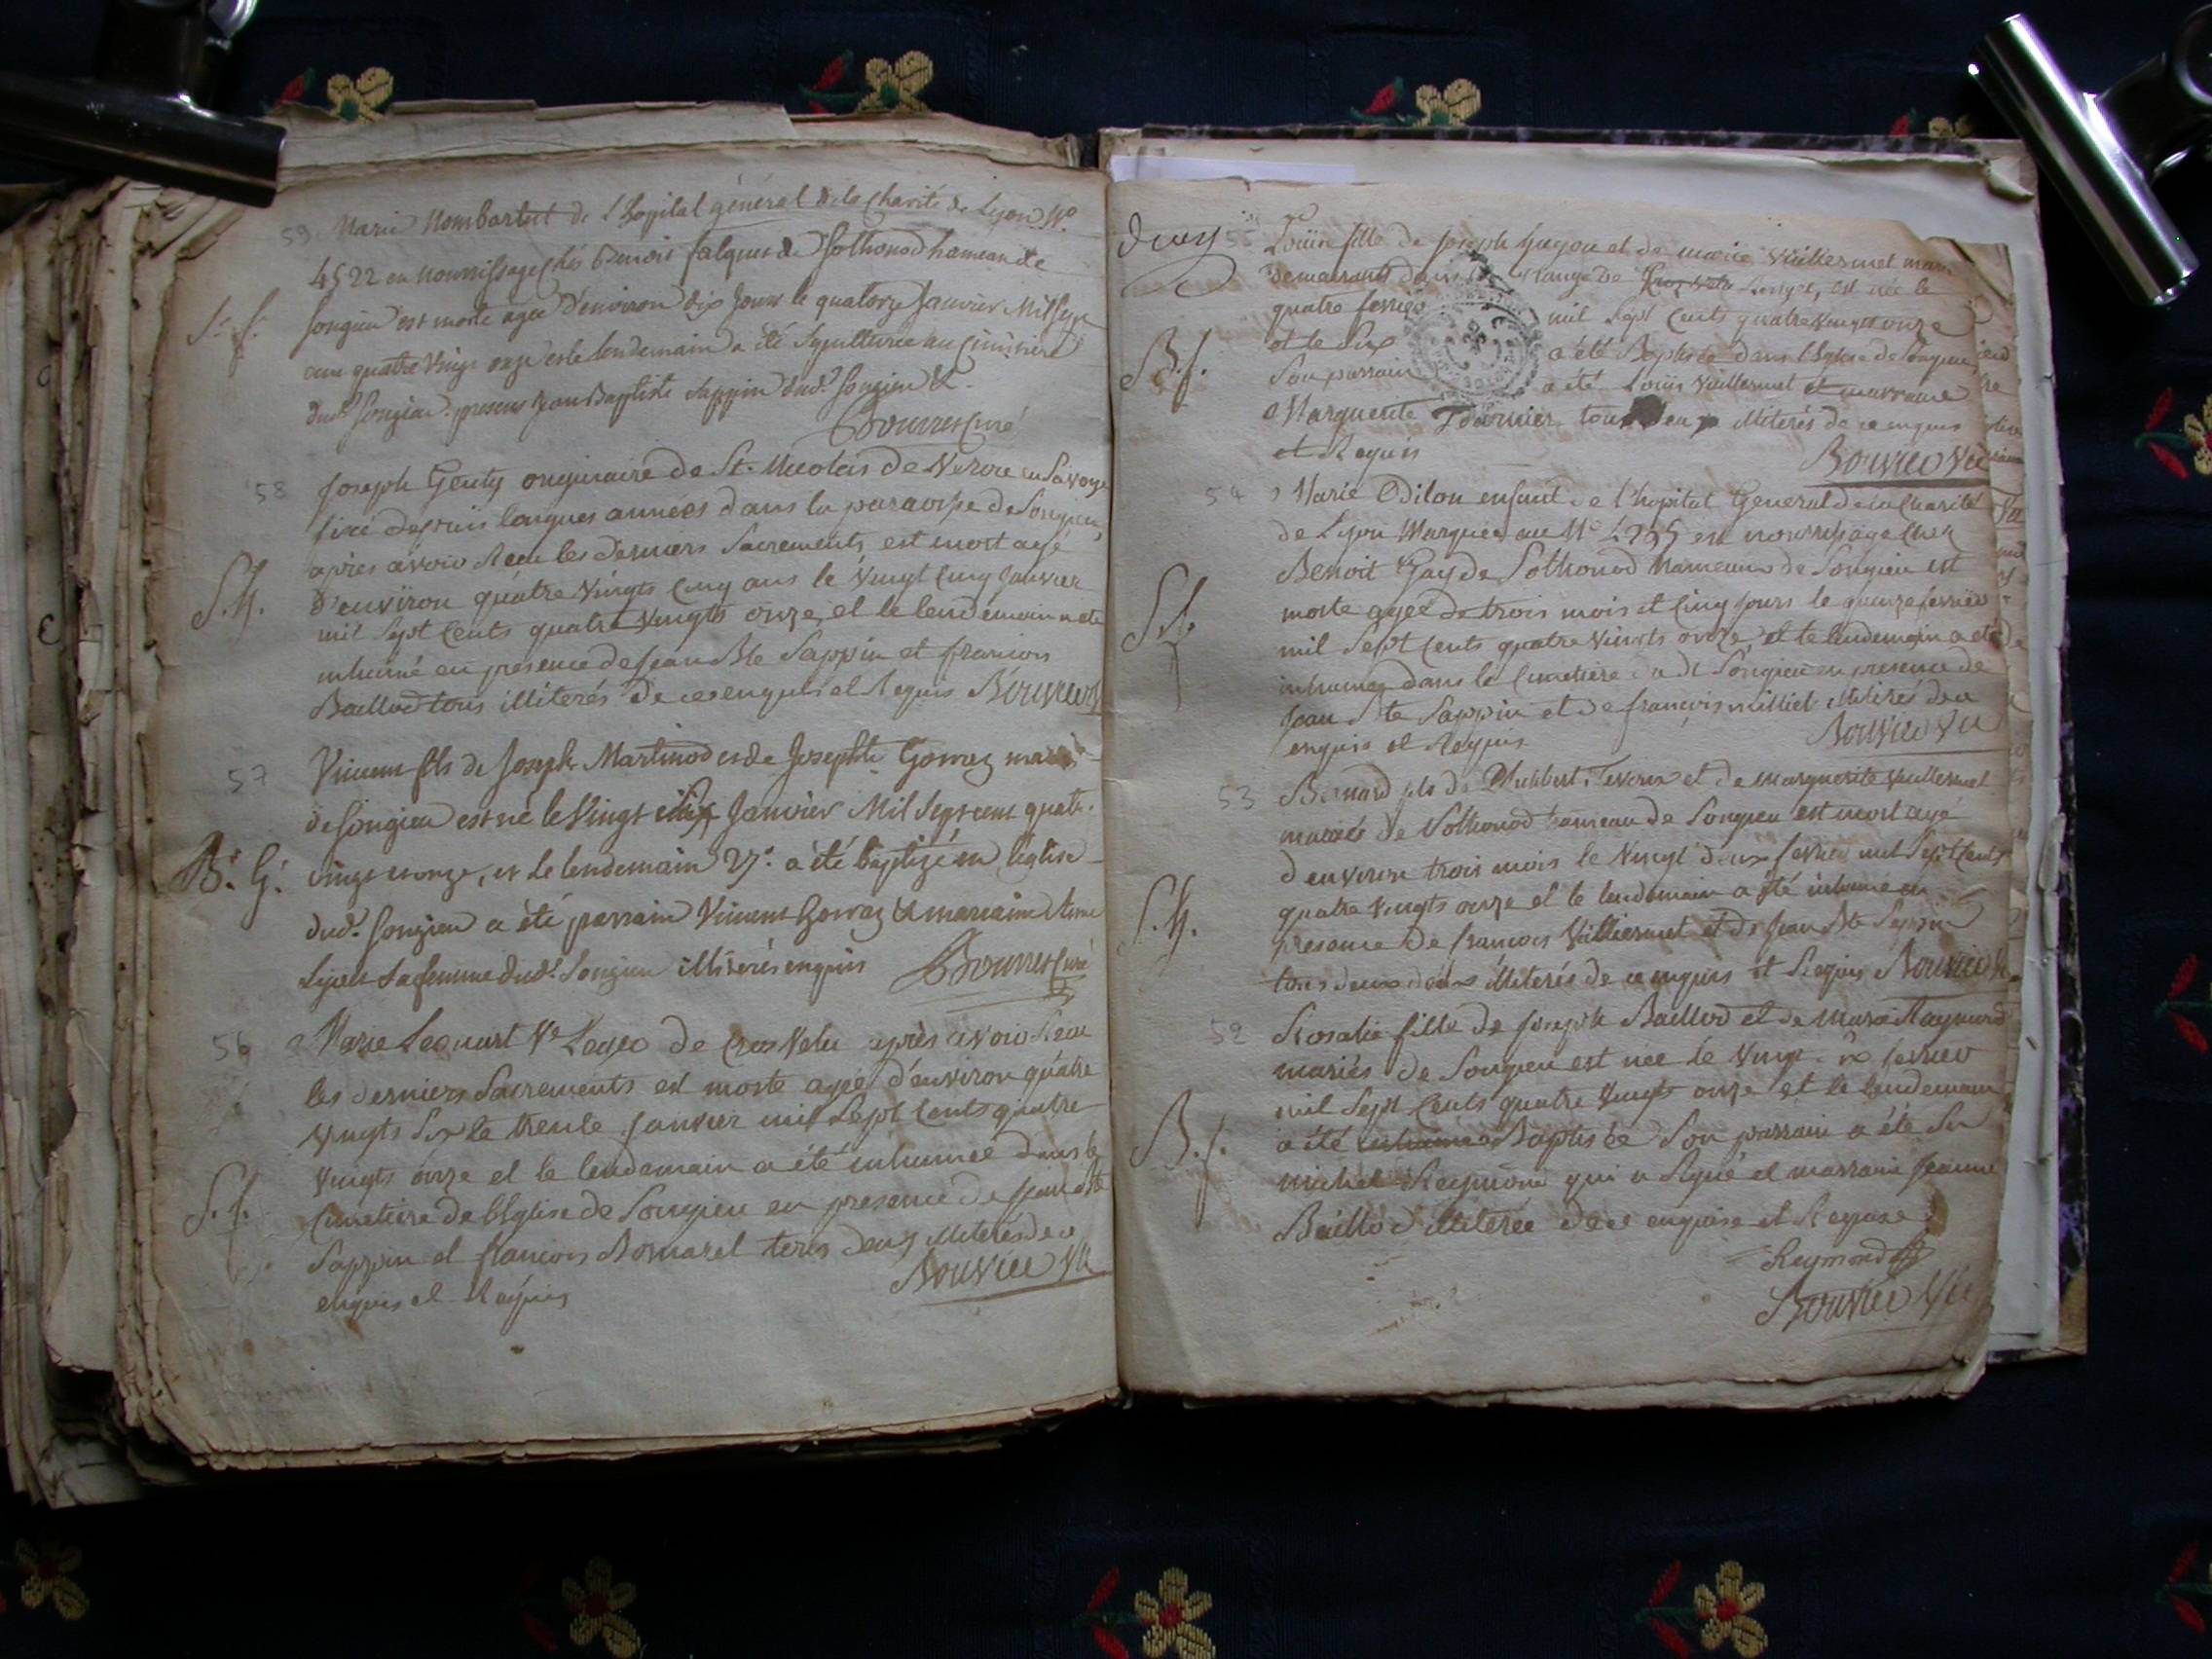 59 Marie Nombartut de l'hopital général de la Charité de Lyon N°
4522 en nourrissage chés Benoit falques de Sothonod hameau de
S. f.
Songieu est morte agee d'environ dix jours le quatorze Janvier Mil sept
cens quatre vingt onze et le lendemain a été sepulturée au cimitiere
dud. Songieu. presens Jean Baptiste Sappin dud. Songieu &.
Bouvier Curé
58 Joseph Genty originaire de St. Nicolas de Veroce en Savoye
fixé depuis longues années dans la paroisse de Songieu,
après avoir Recu les derniers Sacrements, est mort agé
S. G.
d'environ quatre vingts cinq ans le vingt cinq janvier
mil sept cents quatre vingts onze, et le lendemain a eté
inhumé en presence de Jean Bte Sappin et francois
Baillod tous illiterés de ce enquis et Requis Bouvier
57 Vincent fils de Joseph Martinod et de Josephte Gorraz mariés
de Songieu est né le vingt six Janvier Mil Sept cent quatre
B. G. vingt et onze, et le lendemain 27. a été baptizé en l'église
dud. Songieu a été parrain Vincent Gorraz & marraine
sa femme dud. Songieu illiterés enquis Bouvier Curé
56 Marie Ve de Cros Velu après avoir Recu
les derniers Sacrements est morte agée d'environ quatre
vingts six le trente janvier mil sept cents quatre
vingts onze et le lendemain a été inhumée dans le
S. f.
Cimetière de l'Eglise de Songieu en presence de Jean Bte
Sappin et francois Bomarel tous deux illiterés de ce
enquis et Requis Bouvier Vic
55 Louise fille de Joseph Guyon et de marie Vuillermet mariés
demeurants dans la grange de Songieu, est née le
quatre fevrier mil sept cents quatre vingts onze
et le six a été Baptisée dans l'Eglise de Songieu
B. f.
Son parrain a été Louis Vuillermet et marraine
Marguerite Fournier tous deux illiterés de ce enquis
et Requis Bouvier Vic
54 Marie Odilon enfant de l'hopital General de la Charité
de Lyon Marquée au N° en nourrissage chez
Benoit Gay de Sothonod hameau de Songieu est
morte agée de trois mois et cinq jours le quinze fevrier
S. f.
mil sept cents quatre vingts onze, et le lendemain a eté
inhumée dans le Cimetiere du dt Songieu en presence de
Jean Bte Sappin et de francois milliet illiterés de ce
enquis et Requis Bouvier Vic
53 Bernard fils de Philibert Tevenin et de marguerite Vuillermet
mariés de Sothonod hameau de Songieu est mort agé
d'environ trois mois le vingt deux fevrier mil sept cents
S. G.
quatre vingts onze et le lendemain a été inhumé en
presence de francois Vuillermet et de Jean Bte Sappin
tous deux illiterés de ce enquis et Requis Bouvier
52 Rosalie fille de joseph Baillod et de marie Raymond
mariés de Songieu est née le vingt six fevrier
mil sept cents quatre vingts onze et le lendemain
B. f.
a été inhumée Baptisée Son parrain a été Sr
michel Reymond qui a signé et marraine jeanne
Baillod illiterée de ce enquise et Requise
Reymond
Bouvier Vic